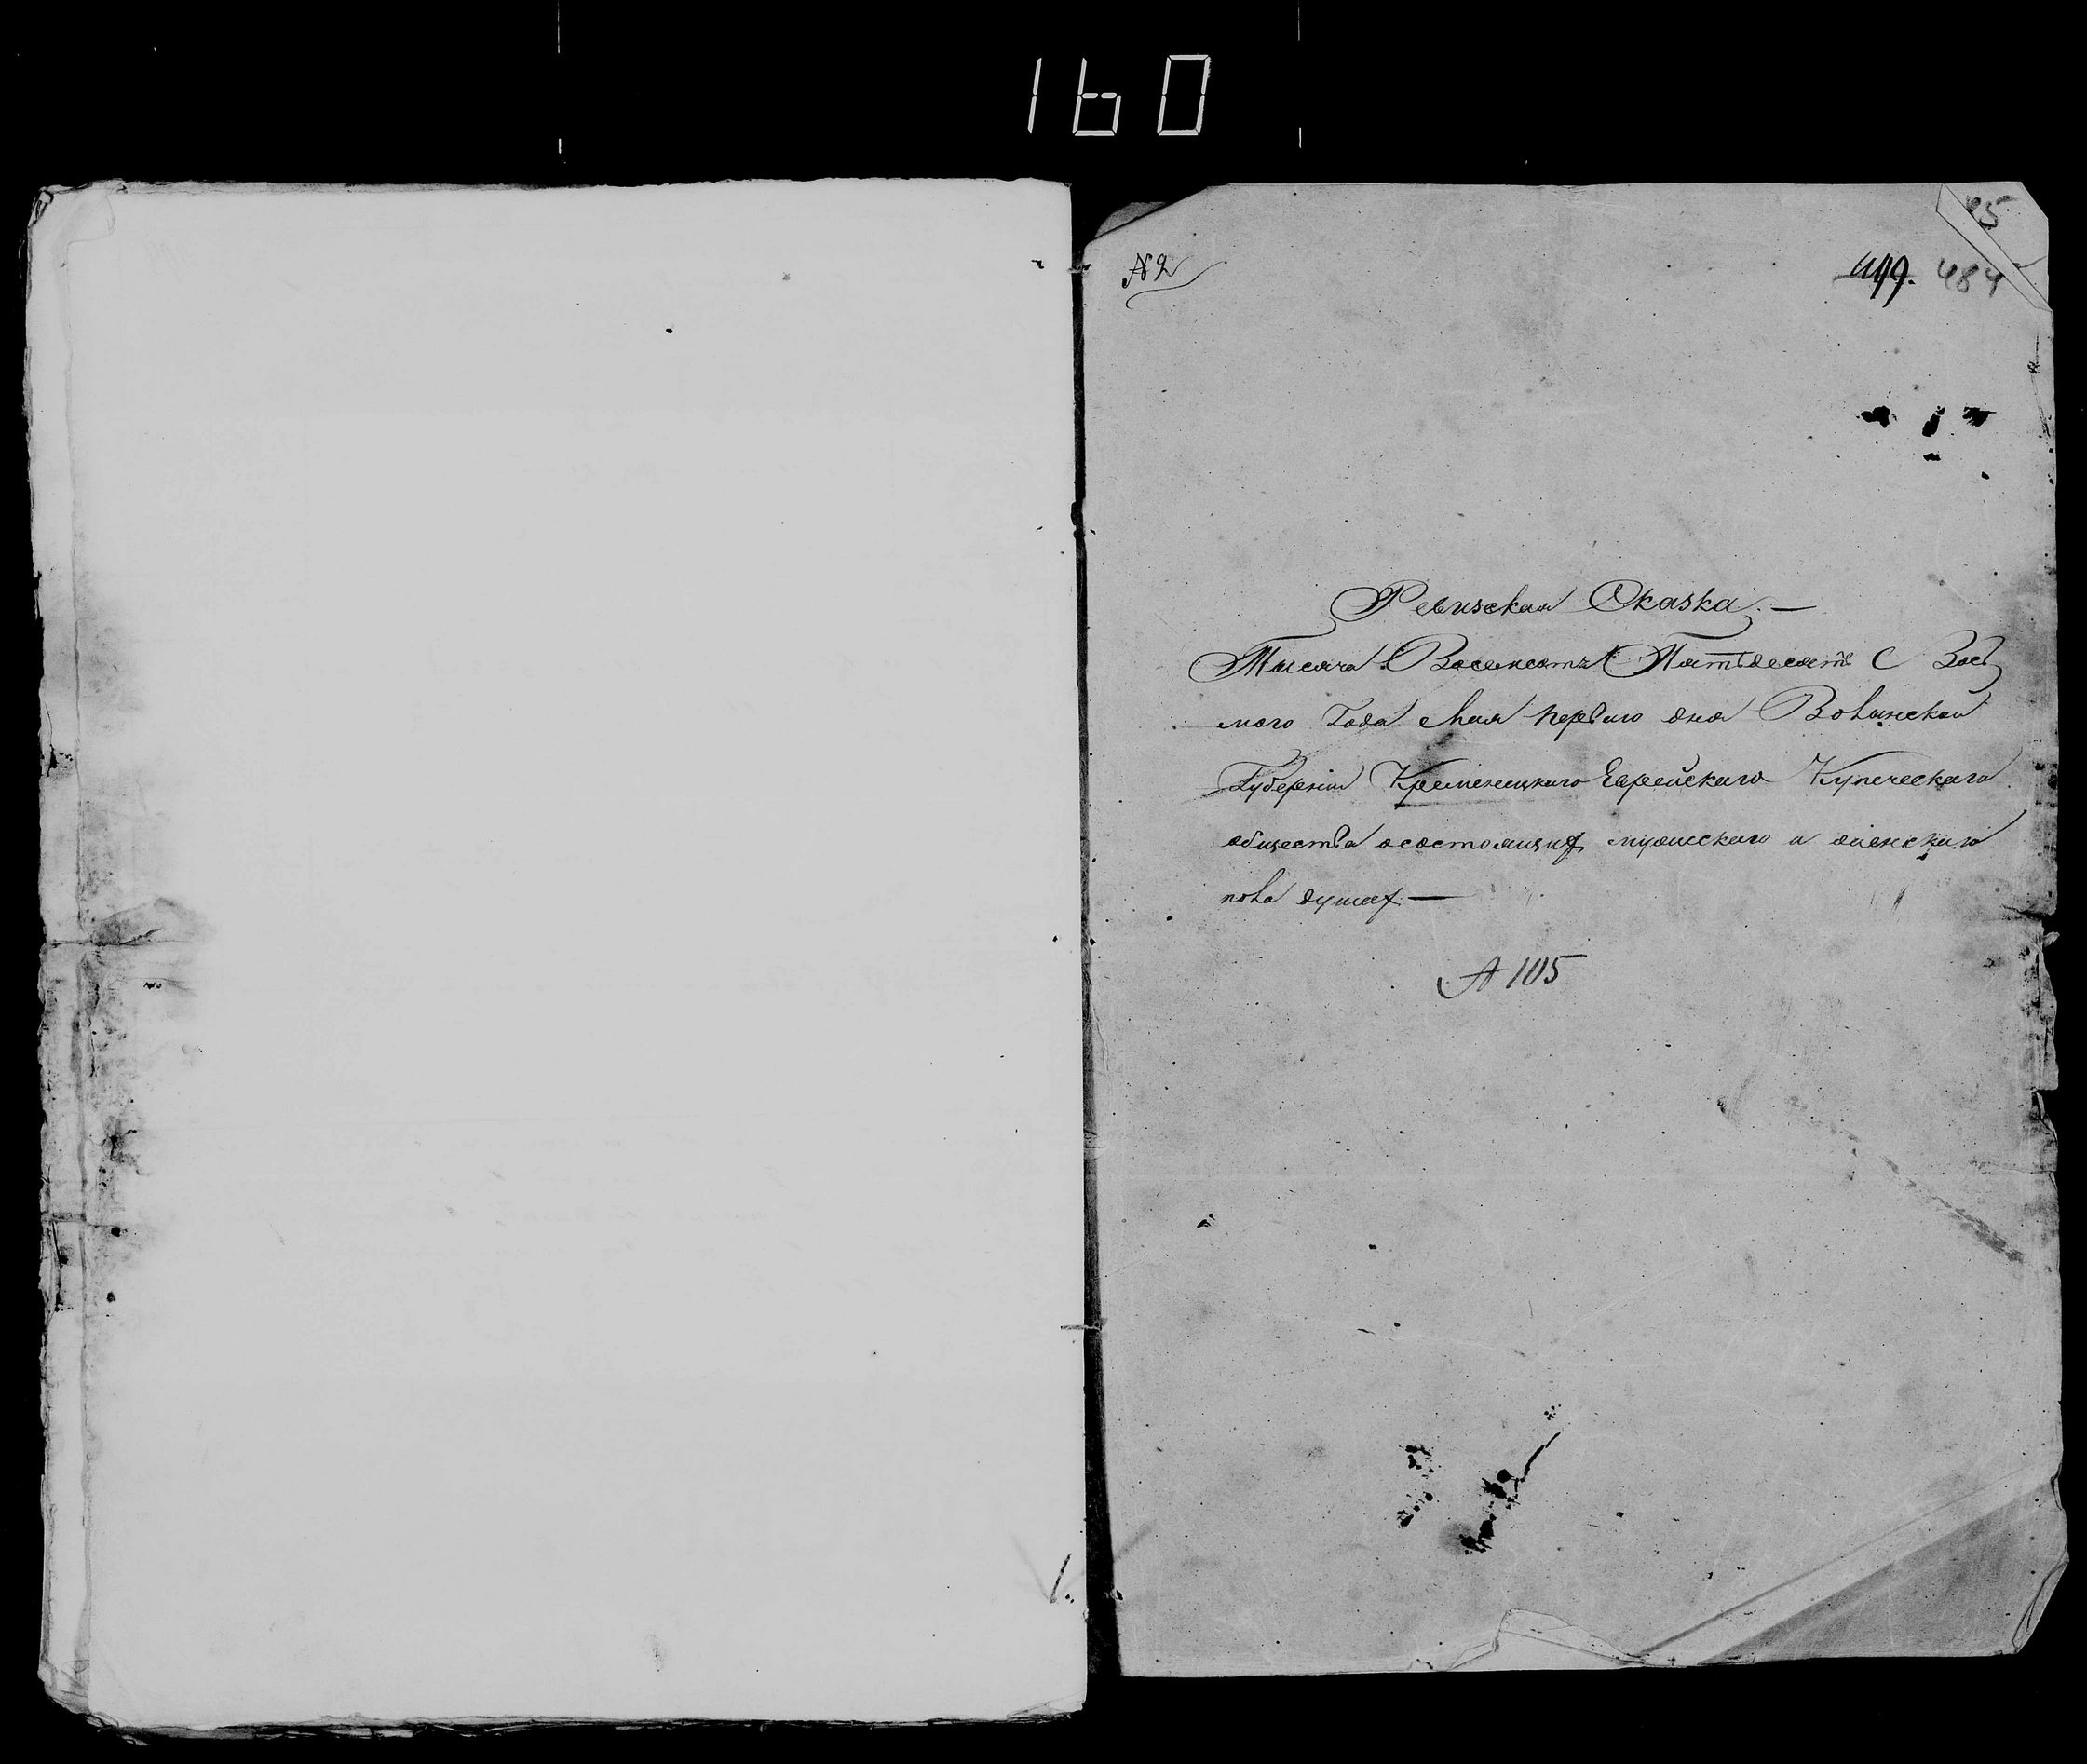 160
№ 2
499. 484
Ревизская Сказка. —
Тысяча Восемсотъ Пятьдесятъ Вось
мого Года Мая первого дня Волынской
Губерніи Кременецкаго Еврейскаго Купеческаго
общества осостоящих мужескаго и женскаго
пола душах —
А 105
1.